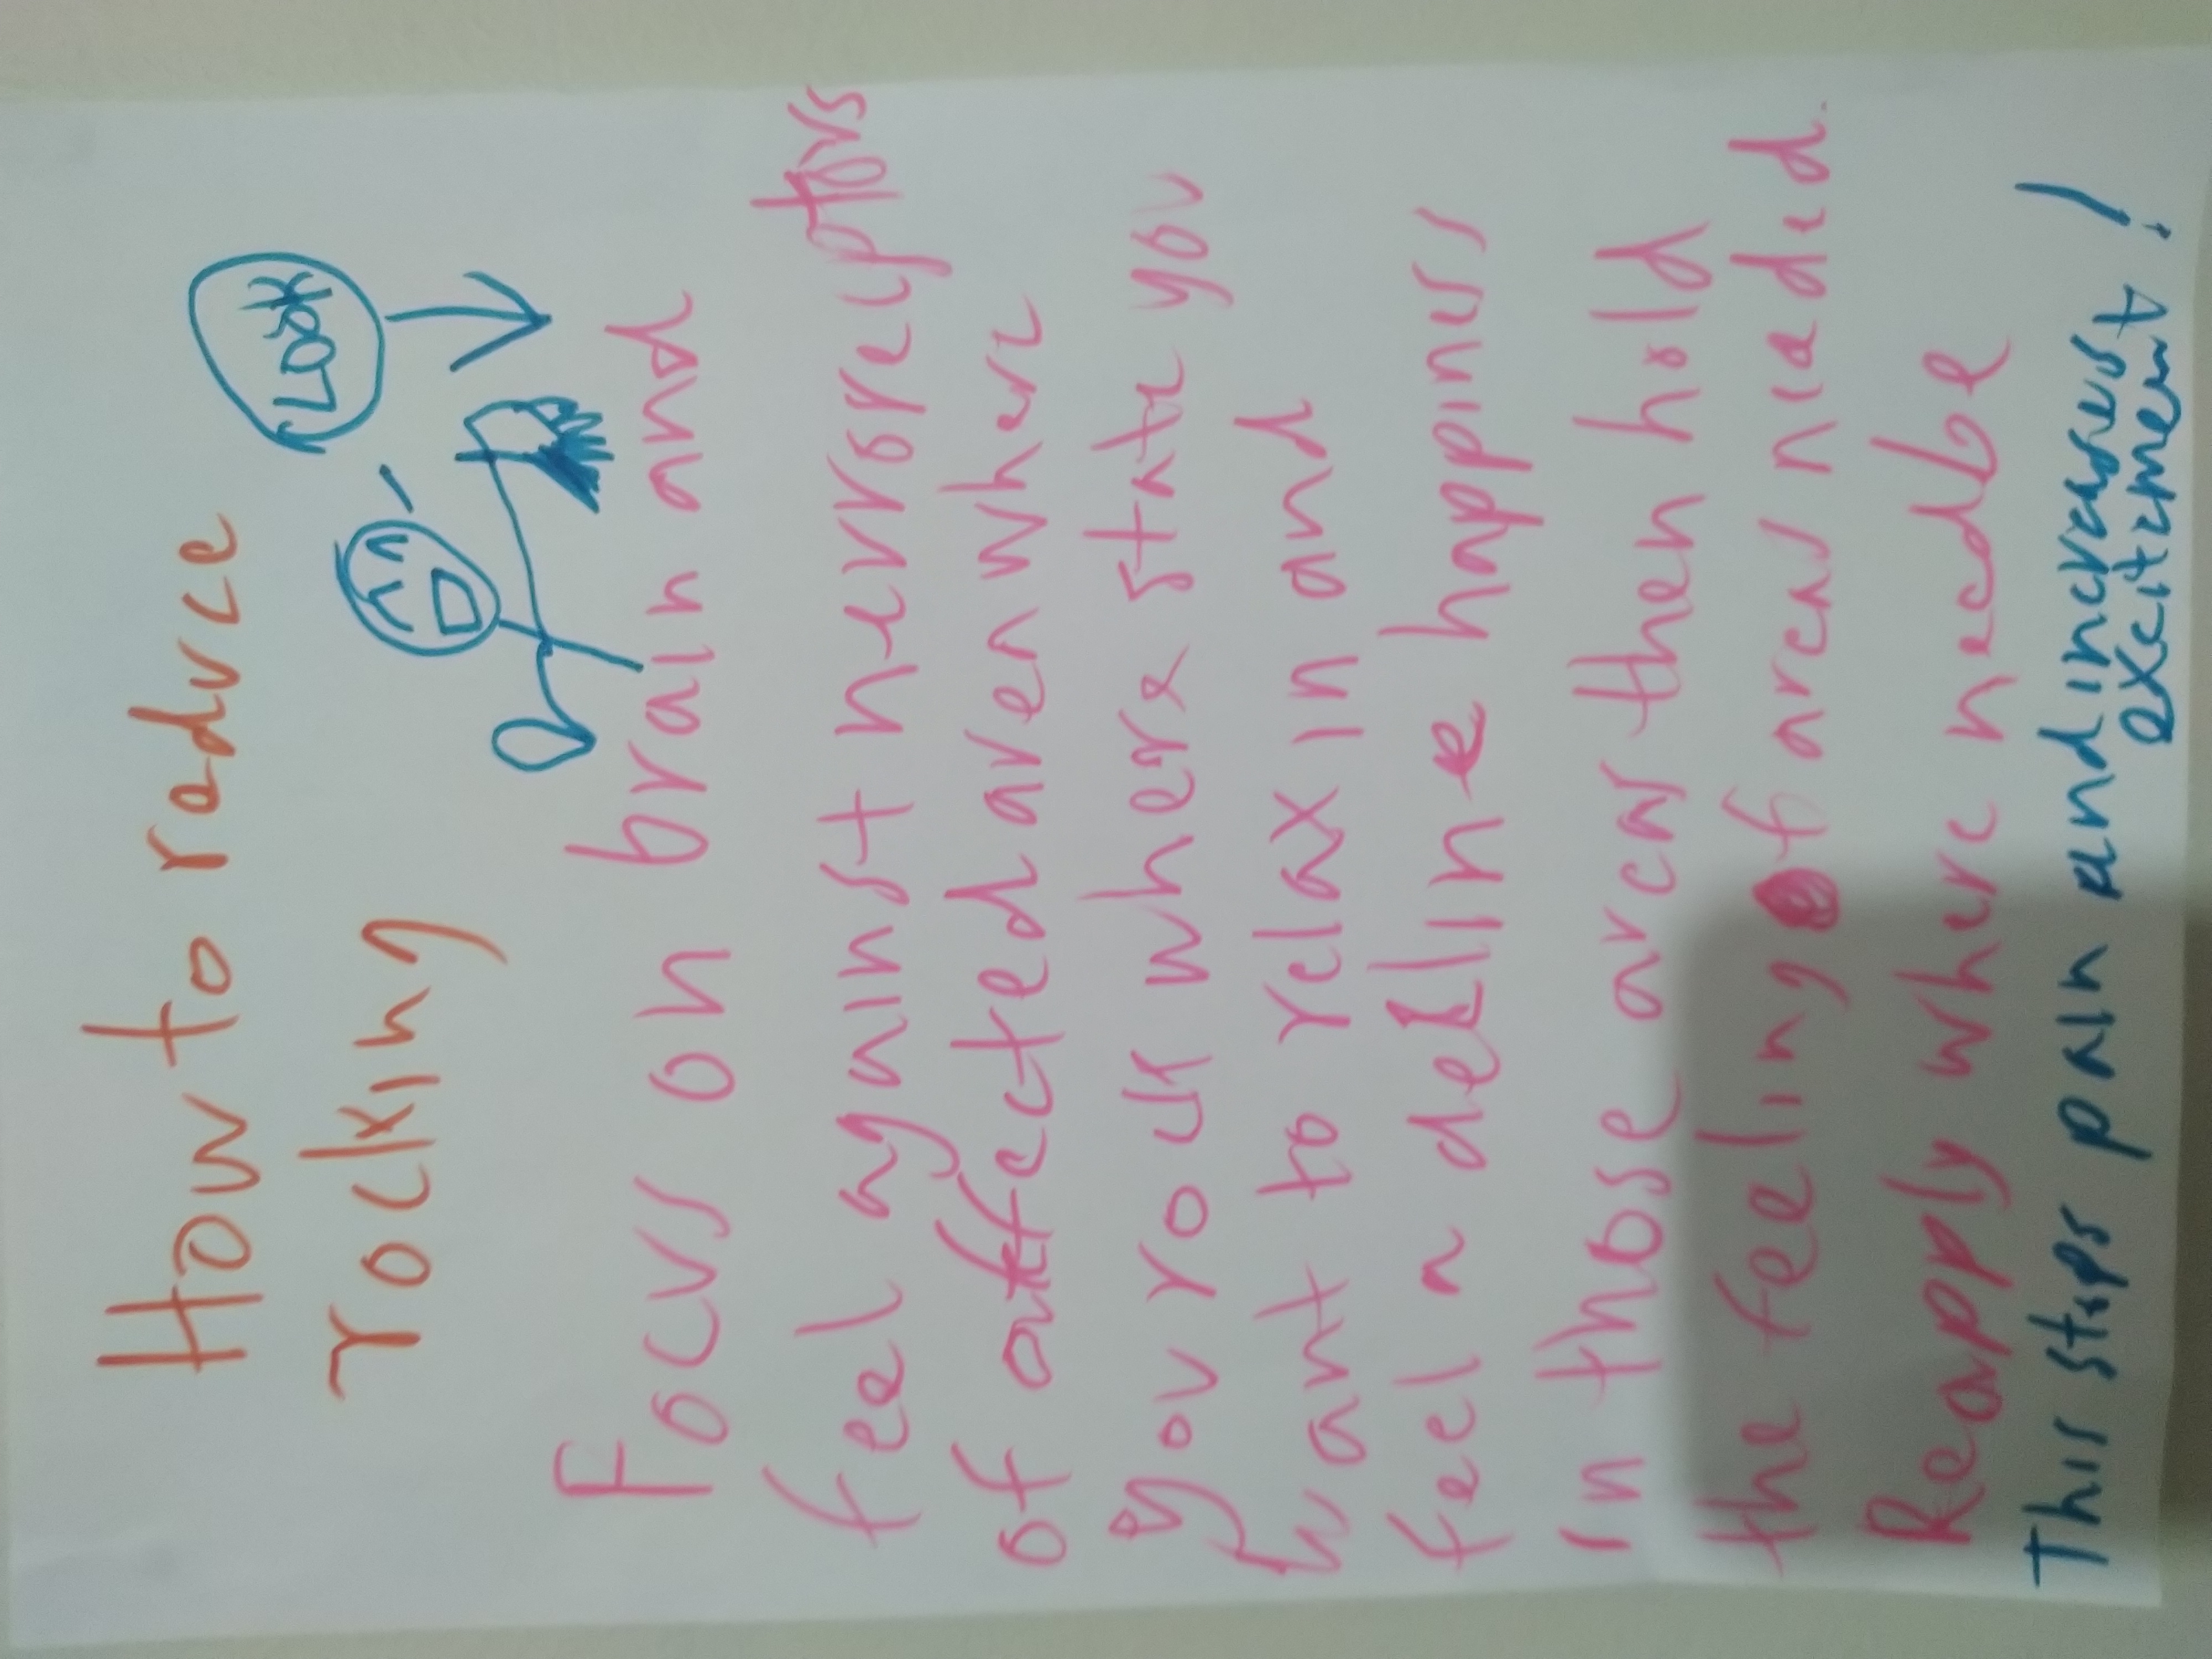 How to reduce
rocking
Look
Focus on brain and
feel against nerrsseceptors
of affected area when
your ok where state you
want to relax in and
feel a deline happins
in those area then hold
the feeling of area nieded
Reapply where neadbe
This stops pain and increasess
Ameriticxe!